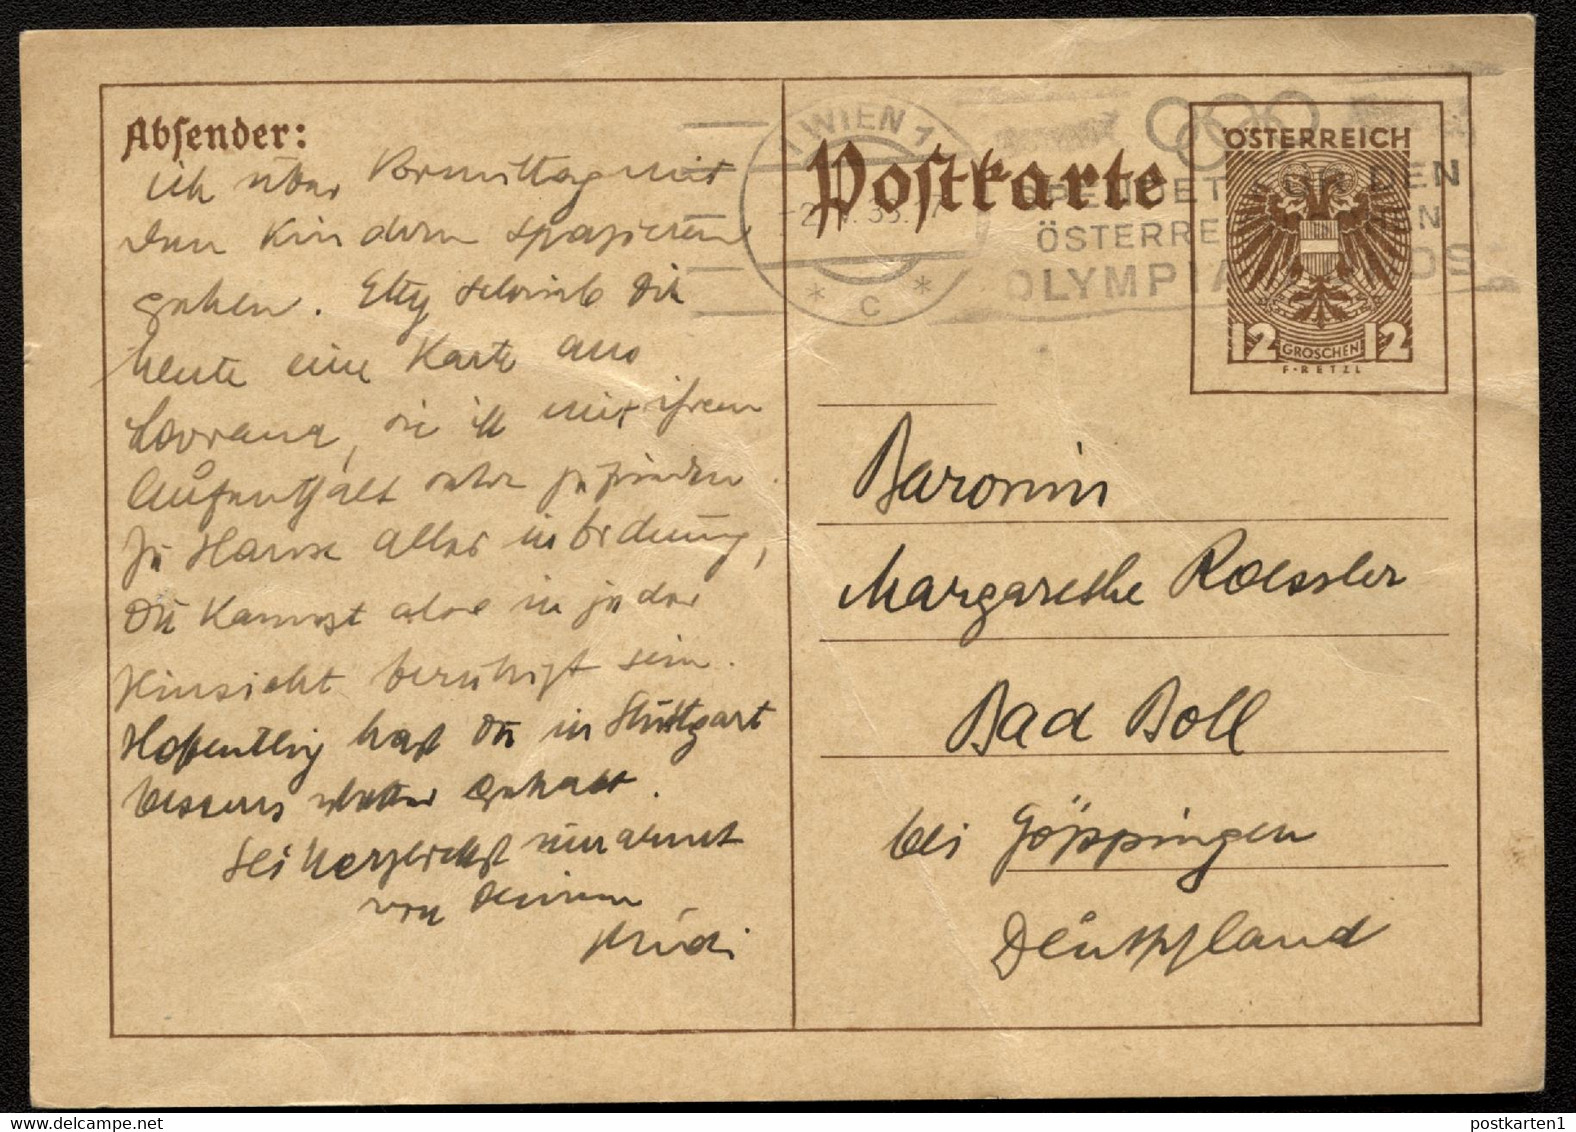 Absender:
ich über Vormittag mit
den Kindern spazieren
gehen. Etty schrieb Dir
heute eine Karte aus
Lovrana, sie ist mit ihrem
Aufenthalt sehr zufrieden.
Zu Hause alles in Ordnung,
Du kannst also in jeder
Hinsicht beruhigt sein.
Hoffentlich hast Du in Stuttgart
besseres Wetter gehabt.
Sei herzlichst umarmt
von Deinem
Rudi
WIEN 1
C
Postkarte
SPENDET FÜR DEN
ÖSTERREICHISCHEN
OLYMPIAFONDS
ÖSTERREICH
12 GROSCHEN 12
F·RETZL
Baronin
Margarethe Roessler
Bad Boll
bei Göppingen
Deutschland
postkarten1